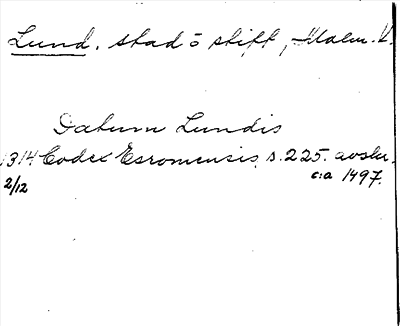 Lund, stad o stift, Malm. l.
Datum Lundis
1314 Codex Esromensis s. 225. avskr.
2/12 c:a 1497.